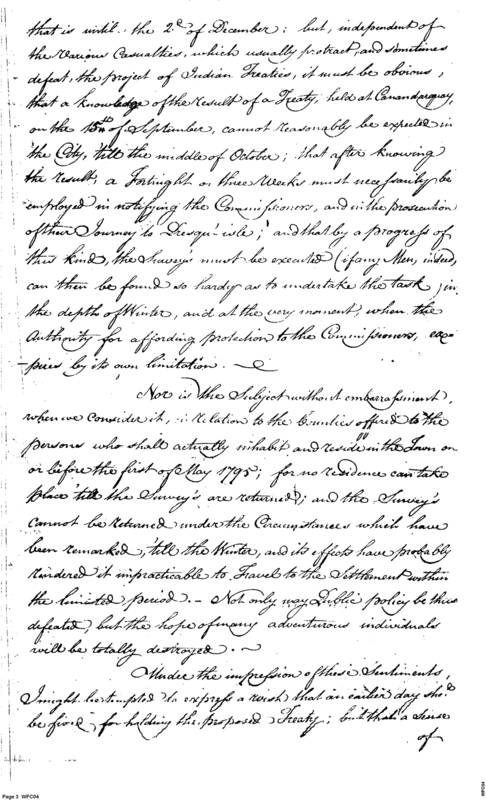 that is until the 2d of December: but, independent of
the various Casualties, which usually protract, and sometimes
defeat, the project of Indian Treaties, it must be obvious,
that a knowledge of the result of a Treaty, held at Canandarquay,
on the 15th of September, cannot reasonably be expected in
the City, 'till the middle of October; that after knowing
the result, a Fortnight or three Weeks must necessarily be
employed in notifying the Commissioners, and in the prosecution
of their Journey to Presqu'-isle; and that by a progress of
this kind, the Surveys must be executed (if any Men, indeed,
can then be found so hardy as to undertake the task) in
the depths of Winter, and at the very moment, when the
Authority for affording protection to the Commissioners, ex-
-pires by its own limitation.
Nor is the Subject without embarrassment,
when we consider it, in relation to the Bounties offered to the
persons who shall actually inhabit and reside in the Town on
or before the first of May 1795; for no residence can take
place 'till the Survey's are returned; and the Survey's
cannot be returned under the Circumstances which have
been remarked, 'till the Winter, and its effects have probably
rendered it impracticable to Travel to the Settlement within
the limited period. - Not only may Public policy be thus
defeated, but the hope of many adventurous individuals
will be totally destroyed.
Under the impression of these Sentiments,
I might be tempted to express a wish that an earlier day shod
be fixed for holding the proposed Treaty; but that a Sense
of
Page 3 WFC04
WFC04